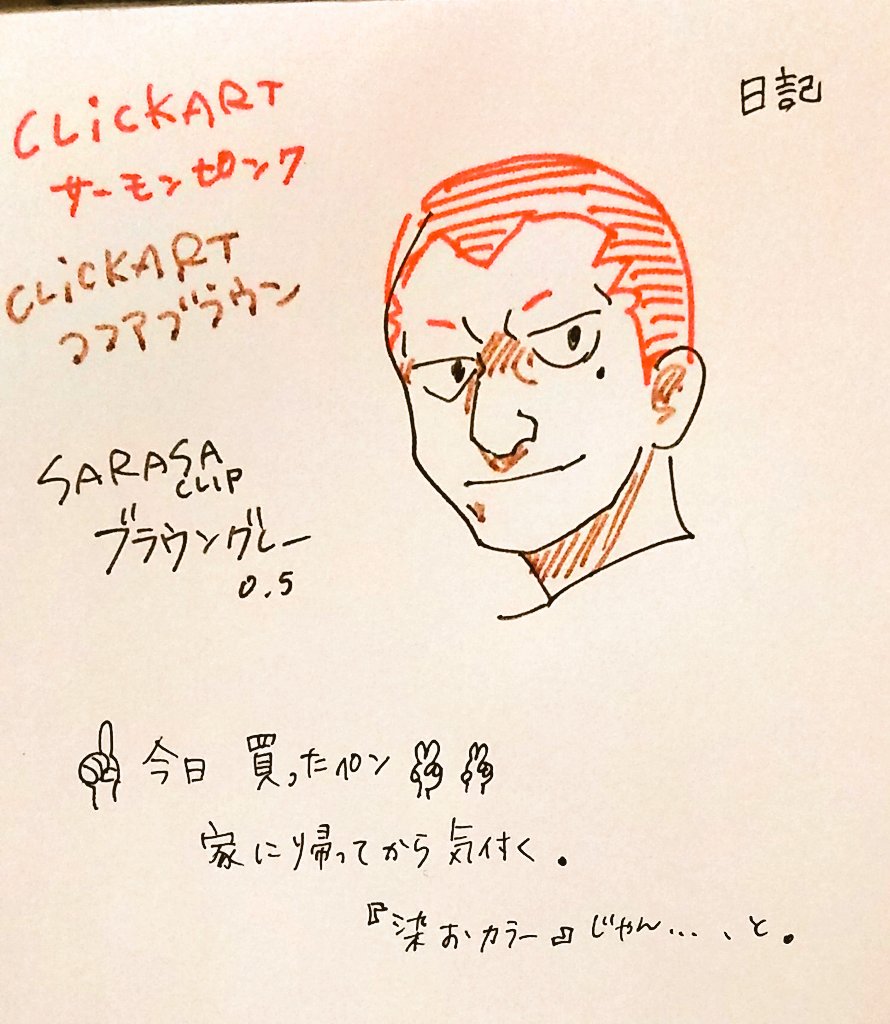 日記
CLiCKART
サーモンピンク
CLiCKART
ココアブラウン
SARASA
CLIP
ブラウングレー
0.5
今日 買ったペン
家に帰ってから気付く.
『染おカラー』じゃん...、と.